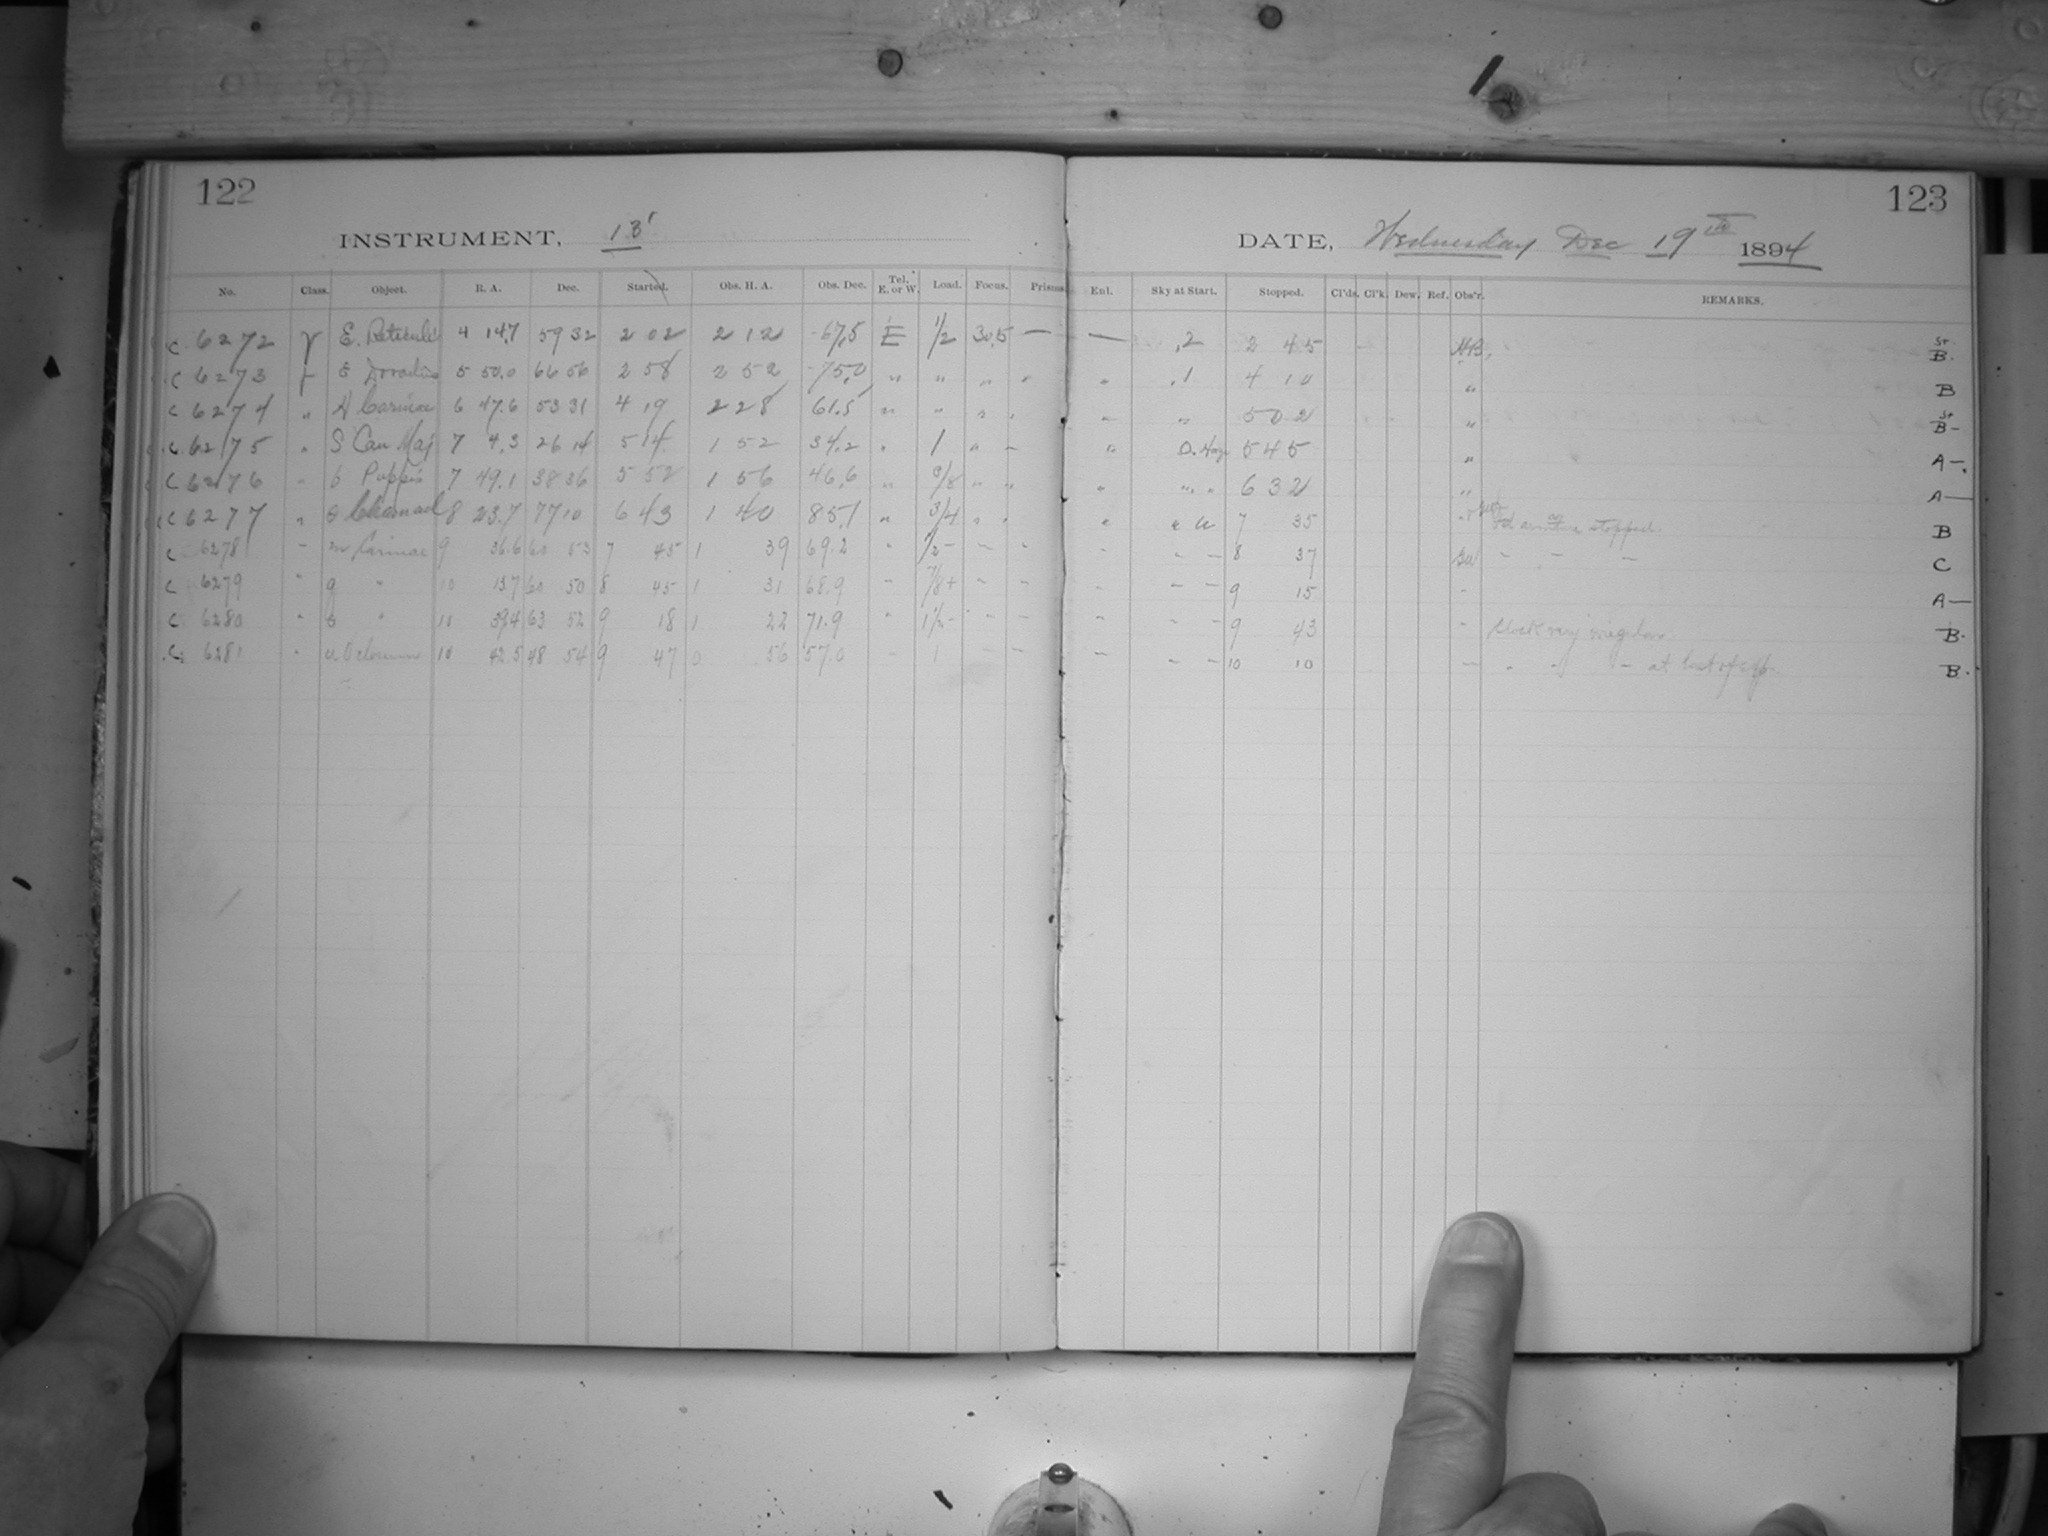 122
123
INSTRUMENT, 13'
DATE, Wednesday Dec 19th 1894
No. Class. Object. R. A. Dec. Started. Obs. H. A. Obs. Dec. Tel. E. or W. Load. Focus. Prisms. Enl. Sky at Start. Stopped. Cl'ds. Cl'k. Dew. Ref. Obs'r. REMARKS.
C 6272 γ E. Reticuli 4 14.7 59 32 2 02 2 12 -67.5 E 1/2 30.5 — — .2 2 45 B.
C 6273 Doradus 5 50.0 66 56 2 58 2 52 -75.0 " " " " " .1 4 10 " B
C 6274 " A Carinae 6 47.6 53 31 4 19 2 28 61.5 " " " " " " 5 02 " B-
C 6275 " S Can Maj 7 4.3 26 14 5 14 1 52 34.2 " 1 " " " 5 45 " A-.
C 6276 " Puppis 7 49.1 38 36 5 52 1 56 46.6 " " " " " " 6 32 " A—
C 6277 " θ Chamael 8 23.7 77 10 6 43 1 40 85.1 " 3/4 " " " 7 35 stopped. B
C 6278 " m Carinae 9 36.6 60 53 7 45 1 39 69.2 " 1/2- " " " " " 8 37 " " " C
C 6279 " q " 10 13.7 60 50 8 45 1 31 68.9 " 7/8+ " " " " " 9 15 " A—
C 6280 " " 11 39.4 63 52 9 18 1 22 71.9 " 1 1/2- " " " " " 9 43 " Clock very irregular B.
C 6281 " 10 42.5 48 54 9 47 0 56 57.0 " 1 " " " " " 10 10 " " " " at last of B.